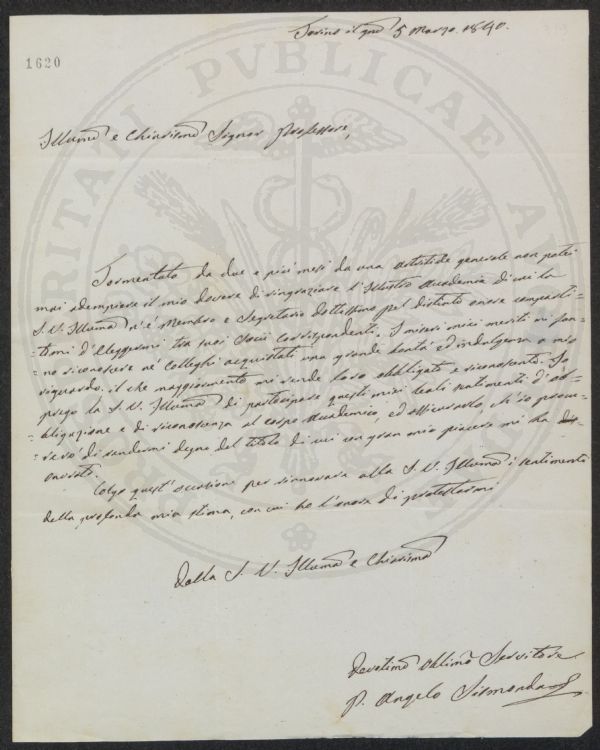 Torino il gno 5 Marzo. 1840.
1620
Illmo e Chiarismo Signor Professore,
Tormentato da due e più mesi da una artritide generale non potei
mai adempiere il mio dovere di ringraziare l'Illustre Accademia di cui la
S. V. Illuma n'è Membro e Segretario dottissimo pel distinto onore comparti-
-tomi d'eleggermi tra suoi Socii corrispondenti. I miseri miei meriti mi fan-
-no riconoscere ne' Colleghi acquistati una grande bontà ed indulgenza a mio
riguardo. il che maggiormente mi rende loro obbligato e riconoscente. Io
prego la S. V. Illuma di partecipare questi miei leali sentimenti d'ob-
-bligazione e di riconoscenza al corpo Accademico, ed assicurarlo, ch'io procu-
-rerò di rendermi degno del titolo di cui con gran mio piacere mi ha
onorato.
Colgo quest'occasione per rinnovare alla S. V. Illuma i sentimenti
della profonda mia stima, con cui ho l'onore di protestarmi
Dalla S. V. Illuma e Chiarisma
Devotimo Obblimo Servitore
P. Angelo Sismonda